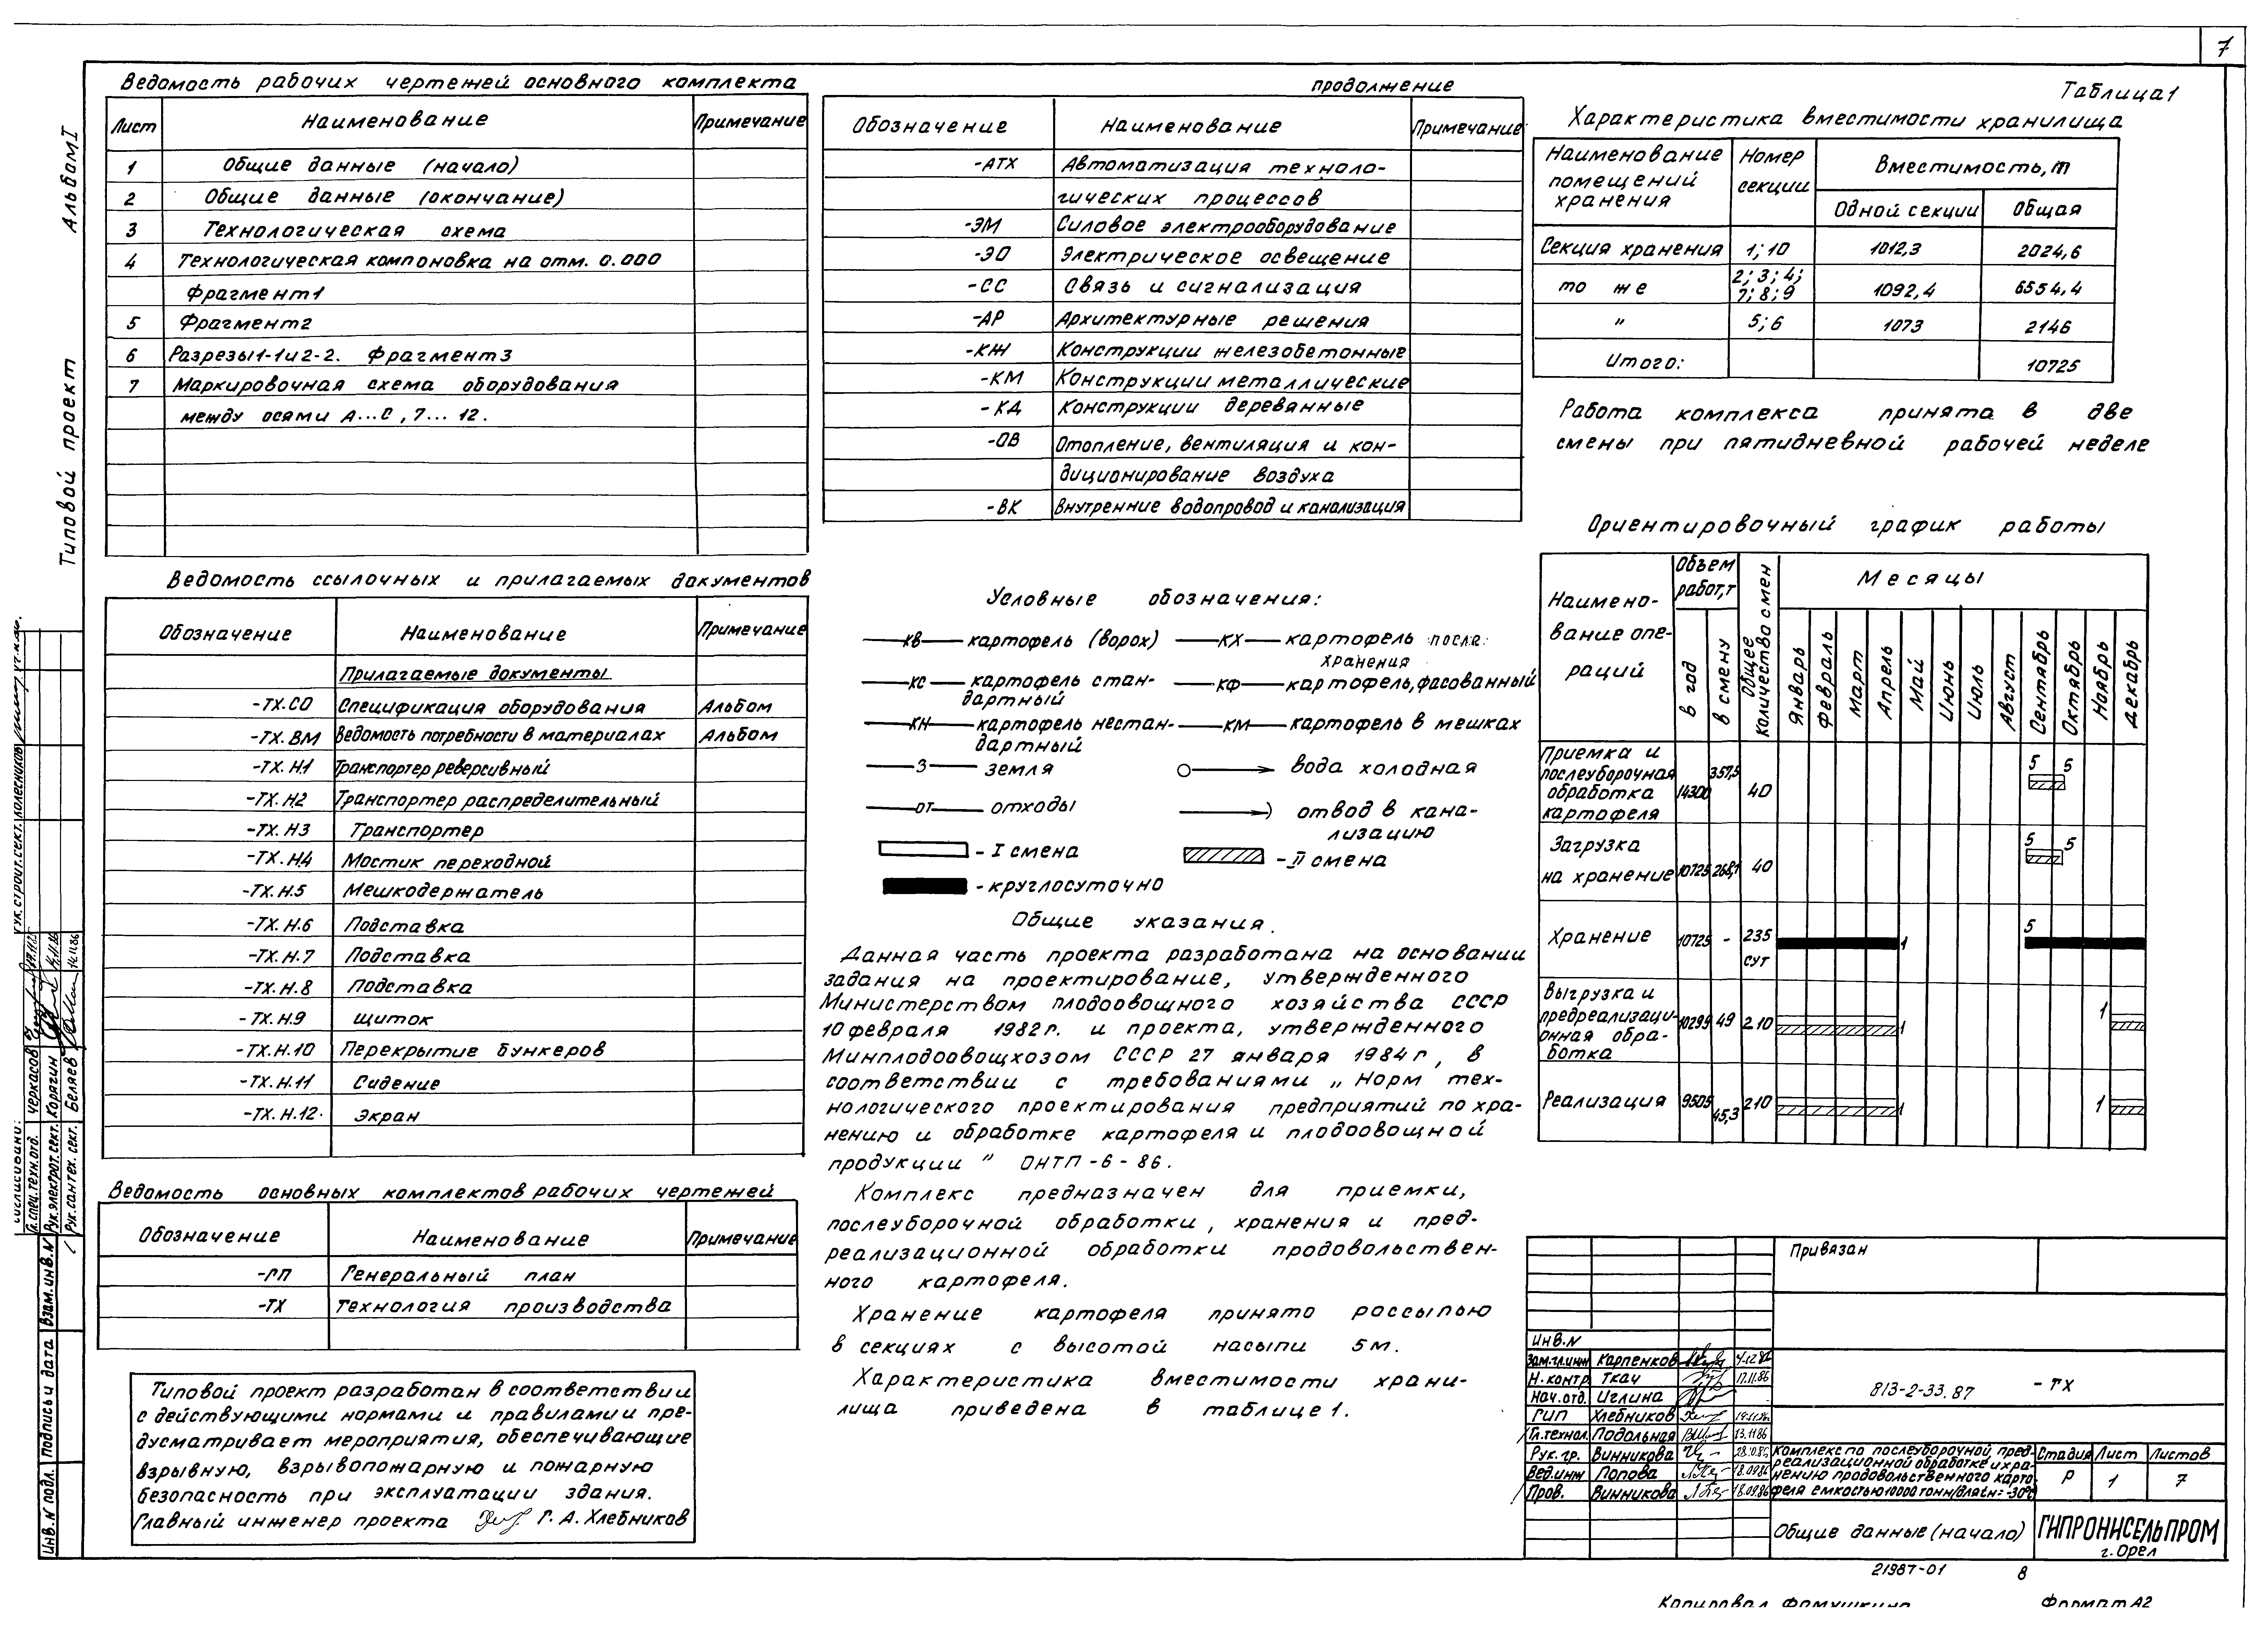 7
Альбом I
Типовой проект
Ведомость рабочих чертежей основного комплекта
Лист Наименование Примечание
1 Общие данные (начало)
2 Общие данные (окончание)
3 Технологическая схема
4 Технологическая компоновка на отм. 0.000
Фрагмент 1
5 Фрагмент 2
6 Разрезы 1-1 и 2-2. Фрагмент 3
7 Маркировочная схема оборудования
между осями А...С, 7...12.
Ведомость ссылочных и прилагаемых документов
Обозначение Наименование Примечание
Прилагаемые документы
-ТХ.СО Спецификация оборудования Альбом
-ТХ.ВМ Ведомость потребности в материалах Альбом
-ТХ.Н.1 Транспортер реверсивный
-ТХ.Н2 Транспортер распределительный
-ТХ.Н3 Транспортер
-ТХ.Н.4 Мостик переходной
-ТХ.Н.5 Мешкодержатель
-ТХ.Н.6 Подставка
-ТХ.Н.7 Подставка
-ТХ.Н.8 Подставка
-ТХ.Н.9 Щиток
-ТХ.Н.10 Перекрытие бункеров
-ТХ.Н.11 Сидение
-ТХ.Н.12. Экран
Ведомость основных комплектов рабочих чертежей
Обозначение Наименование Примечание
-ГП Генеральный план
-ТХ Технология производства
Типовой проект разработан в соответствии
с действующими нормами и правилами и пре-
дусматривает мероприятия, обеспечивающие
взрывную, взрывопожарную и пожарную
безопасность при эксплуатации здания.
Главный инженер проекта Г. А. Хлебников
продолжение
Обозначение Наименование Примечание
-АТХ Автоматизация техноло-
гических процессов
-ЭМ Силовое электрооборудование
-ЭО Электрическое освещение
-СС Связь и сигнализация
-АР Архитектурные решения
-КЖ Конструкции железобетонные
-КМ Конструкции металлические
-КД Конструкции деревянные
-ОВ Отопление, вентиляция и кон-
диционирование воздуха
-ВК Внутренние водопровод и канализация
Условные обозначения:
КВ картофель (ворох) КХ картофель после
хранения
КС картофель стан- КФ картофель, фасованный
дартный
КН картофель нестан- КМ картофель в мешках
дартный
З земля вода холодная
ОТ отходы отвод в кана-
лизацию
- I смена - II смена
- круглосуточно
Общие указания.
Данная часть проекта разработана на основании
задания на проектирование, утвержденного
Министерством плодоовощного хозяйства СССР
10 февраля 1982г. и проекта, утвержденного
Минплодоовощхозом СССР 27 января 1984г, в
соответствии с требованиями „Норм тех-
нологического проектирования предприятий по хра-
нению и обработке картофеля и плодоовощной
продукции" ОНТП-6-86.
Комплекс предназначен для приемки,
послеуборочной обработки, хранения и пред-
реализационной обработки продовольствен-
ного картофеля.
Хранение картофеля принято россыпью
в секциях с высотой насыпи 5м.
Характеристика вместимости храни-
лища приведена в таблице 1.
Таблица 1
Характеристика вместимости хранилища
Наименование помещений хранения Номер секции Вместимость, т
Одной секции Общая
Секция хранения 1; 10 1012,3 2024,6
то же 2; 3; 4; 7; 8; 9 1092,4 6554,4
" 5; 6 1073 2146
Итого: 10725
Работа комплекса принята в две
смены при пятидневной рабочей неделе
Ориентировочный график работы
Наимено-
вание опе-
раций
Объем работ, т
в год в смену
Общее количество смен
Месяцы
Январь Февраль Март Апрель Май Июнь Июль Август Сентябрь Октябрь Ноябрь Декабрь
Приемка и
послеуборочная
обработка
картофеля
14300 357,5 40 5 5
Загрузка
на хранение
10725 268,1 40 5 5
Хранение 10725 - 235 сут 1 5
Выгрузка и
предреализаци-
онная обра-
ботка
10299 49 210 1 1
Реализация 9505 45,3 210 1 1
Привязан
Инв.N
Зам.гл.инж Карпенков
Н.контр Ткач 17.11.86
Нач.отд. Иглина
ГИП Хлебников
Гл.технол. Подольная 13.11.86
Рук.гр. Винникова 28.10.86
Вед.инж Попова 18.09.86
Пров. Винникова 18.09.86
813-2-33.87 - ТХ
Комплекс по послеуборочной, пред-
реализационной обработке и хра-
нению продовольственного карто-
феля емкостью 10000 тонн/для tн=-30°С
Стадия Лист Листов
Р 1 7
Общие данные (начало)
ГИПРОНИСЕЛЬПРОМ
г. Орел
21987-01 8
Копировал Формат А2
Гл.спец.техн.отд. Черкасов
Рук.электрот.сект. Корягин 14.11.86
Рук.сантех.сект. Беляев 14.11.86
Рук.строит.сект. Колесников
Инв.N подл. Подпись и дата Взам.инв.N